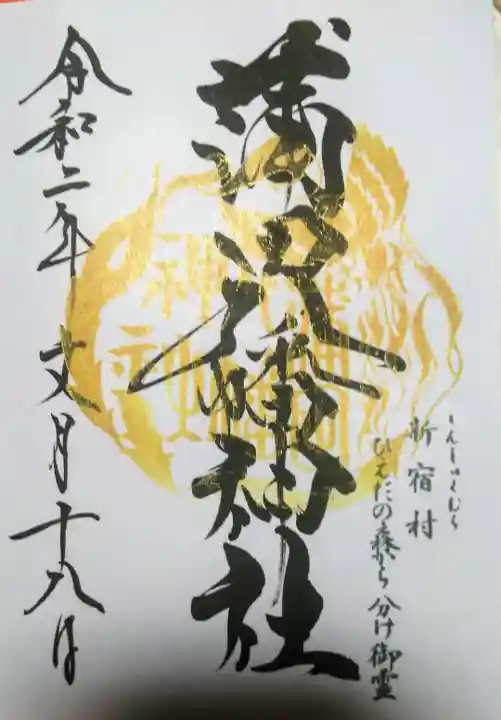 しんしゅくむら
新宿村
ひえだの森から分け御霊
蒲田八幡神社
令和二年 文月十八日